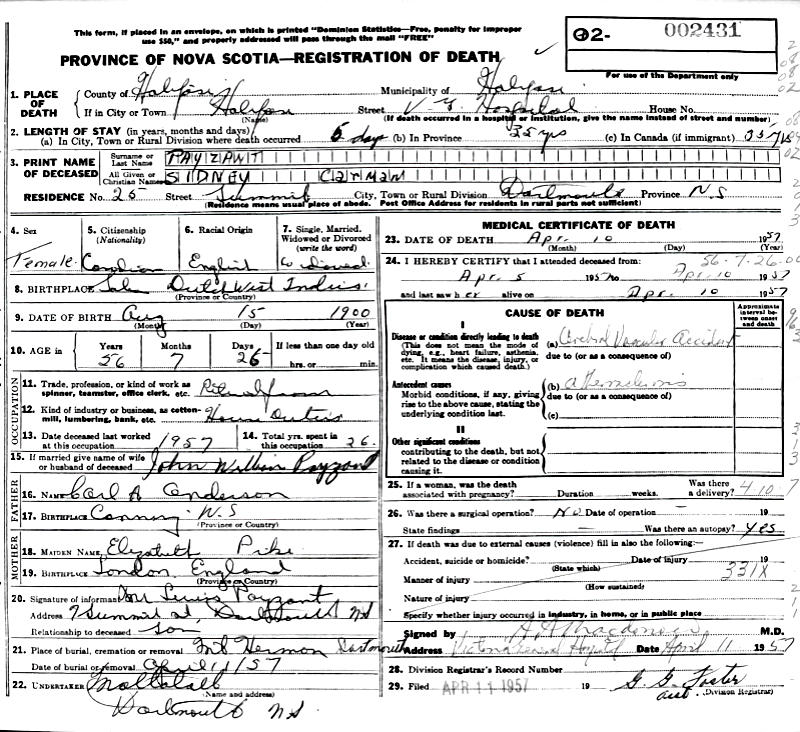 This form, if placed in an envelope, on which is printed "Dominion Statistics—Free, penalty for improper
use $50," and properly addressed will pass through the mail "FREE"
PROVINCE OF NOVA SCOTIA—REGISTRATION OF DEATH
02- 002431
For use of the Department only
1. PLACE OF DEATH County of Halifax Municipality of Halifax
If in City or Town Halifax Street V. G. Hospital House No.
(Name) (If death occurred in a hospital or institution, give the name instead of street and number)
2. LENGTH OF STAY (in years, months and days)
(a) In City, Town or Rural Division where death occurred 5 days (b) In Province 35 yrs (c) In Canada (if immigrant) 35 yrs
3. PRINT NAME OF DECEASED Surname or Last Name PAYZANT
All Given or Christian Names SIDNEY CARMAN
RESIDENCE No. 25 Street Summit City, Town or Rural Division Dartmouth Province N.S
(Residence means usual place of abode. Post Office Address for residents in rural parts not sufficient)
4. Sex Female
5. Citizenship (Nationality) Canadian
6. Racial Origin English
7. Single, Married, Widowed or Divorced (write the word) Widowed
8. BIRTHPLACE Dutch West Indies
(Province or Country)
9. DATE OF BIRTH Aug 15 1900
(Month) (Day) (Year)
10. AGE in Years 56 Months 7 Days 26 If less than one day old hrs. or min.
OCCUPATION
11. Trade, profession, or kind of work as spinner, teamster, office clerk, etc.
12. Kind of industry or business, as cotton-mill, lumbering, bank, etc. House Duties
13. Date deceased last worked at this occupation 1957
14. Total yrs. spent in this occupation 26
15. If married give name of wife or husband of deceased John William Payzant
FATHER
16. NAME Carl A Anderson
17. BIRTHPLACE Canning N.S
(Province or Country)
MOTHER
18. MAIDEN NAME Elizabeth Pike
19. BIRTHPLACE London England
(Province or Country)
20. Signature of informant Mr Lewis Payzant
Address 7 Summit st, Dartmouth NS
Relationship to deceased Son
21. Place of burial, cremation or removal Mt Hermon Dartmouth
Date of burial or removal April 11/57
22. UNDERTAKER Mattatall
(Name and address)
Dartmouth NS
MEDICAL CERTIFICATE OF DEATH
23. DATE OF DEATH Apr. 10 1957
(Month) (Day) (Year)
24. I HEREBY CERTIFY that I attended deceased from: 56-7-26
Apr. 5 1957 to Apr. 10 1957
and last saw h er alive on Apr. 10 1957
CAUSE OF DEATH
Approximate interval between onset and death
I
Disease or condition directly leading to death (a) Cerebral Vascular Accident
(This does not mean the mode of dying, e.g., heart failure, asthenia, etc. It means the disease, injury, or complication which caused death.)
due to (or as a consequence of)
Antecedent causes (b) atherosclerosis
Morbid conditions, if any, giving rise to the above cause, stating the underlying condition last.
due to (or as a consequence of)
(c)
II
Other significant conditions
contributing to the death, but not related to the disease or condition causing it.
25. If a woman, was the death associated with pregnancy? Duration weeks. Was there a delivery? 4 10 7
26. Was there a surgical operation? No Date of operation — 19
State findings — Was there an autopsy? Yes
27. If death was due to external causes (violence) fill in also the following:—
Accident, suicide or homicide? Date of injury 19
(State which)
Manner of injury 331X
(How sustained)
Nature of injury
Specify whether injury occurred in industry, in home, or in public place
Signed by A A Macdonald M.D.
Address Victoria General Hospital Date April 11 1957
28. Division Registrar's Record Number
29. Filed APR 11 1957 19 G. G. Foster
asst. (Division Registrar)